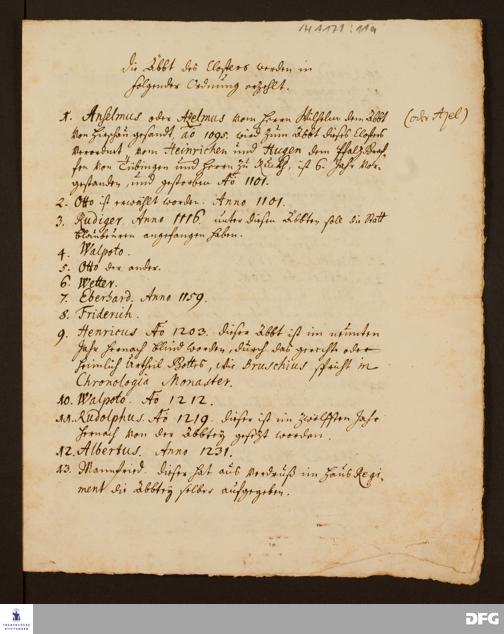 H 1171 : 11a
Die Äbbt des Closters werden in
folgender Ordnung erzehlt.
1. Anselmus oder Azelmus vom Herrn Wilhelm dem Abbt (oder Azel)
von Hirschau gesandt ao 1095. wird zum Abbt dieses Closters
verordnet von Heinrichen und Hugen dem Pfalz-Graf-
fen von Tübingen und Herrn zu Ruckh, ist 6. Jahr vor-
gestanden, und gestorben Ao 1101.
2. Otto ist erwählt worden. Anno 1101.
3. Rudiger. Anno 1116. unter diesen Äbbten soll die Statt
Blaubeuren angefangen haben.
4. Walpoto.
5. Otto der ander.
6. Wetter.
7. Eberhard. Anno 1159.
8. Friderich.
9. Henricus Ao 1203. dieser Abbt ist im neunten
Jahr hernach blind worden, durch das gerechte oder
heimlich Urtheil Gottes, wie Bruschius spricht in
Chronologia Monaster.
10. Walpoto. Ao 1212.
11. Rudolphus. Ao 1219. dieser ist im zwölfften Jahr
hernach von der Abbtey gesezt worden.
12. Albertus. Anno 1231.
13. Mannfried. dieser hat aus Verdruß im Haus Regi-
ment die Abbtey selber aufgegeben.
FRANCKESCHE
STIFTUNGEN
DFG